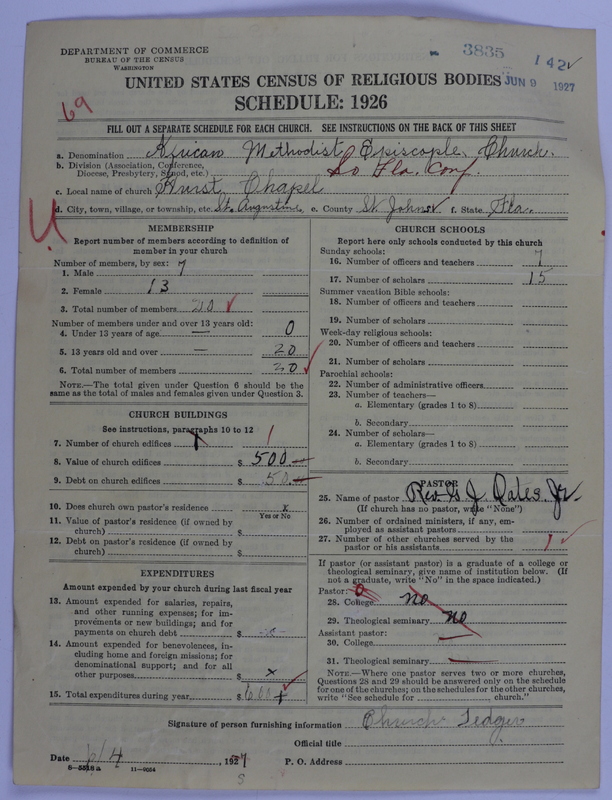 DEPARTMENT OF COMMERCE
BUREAU OF THE CENSUS
WASHINGTON
3835
142
JUN 9 1927
69
UNITED STATES CENSUS OF RELIGIOUS BODIES
SCHEDULE: 1926
FILL OUT A SEPARATE SCHEDULE FOR EACH CHURCH. SEE INSTRUCTIONS ON THE BACK OF THIS SHEET
a. Denomination African Methodist Episcople Church
b. Division (Association, Conference, Diocese, Presbytery, Synod, etc.) So Fla. Conf.
c. Local name of church Hurst Chapel
d. City, town, village, or township, etc. St. Augustine e. County St Johns f. State Fla.
MEMBERSHIP
Report number of members according to definition of
member in your church
Number of members, by sex:
1. Male 7
2. Female 13
3. Total number of members 20
Number of members under and over 13 years old:
4. Under 13 years of age — 0
5. 13 years old and over — 20
6. Total number of members 20
NOTE.—The total given under Question 6 should be
same as the total of males and females given under Question 3.
CHURCH BUILDINGS
See instructions, paragraphs 10 to 12
7. Number of church edifices 1 1
8. Value of church edifices $ 500
9. Debt on church edifices $ 50
10. Does church own pastor's residence x
Yes or No
11. Value of pastor's residence (if owned by
church) $
12. Debt on pastor's residence (if owned by
church) $
EXPENDITURES
Amount expended by your church during last fiscal year
13. Amount expended for salaries, repairs,
and other running expenses; for improvements
or new buildings; and for
payments on church debt $
14. Amount expended for benevolences, including
home and foreign missions; for
denominational support; and for all
other purposes x
15. Total expenditures during year $
CHURCH SCHOOLS
Report here only schools conducted by this church
Sunday schools:
16. Number of officers and teachers 7
17. Number of scholars 15
Summer vacation Bible schools:
18. Number of officers and teachers
19. Number of scholars
Week-day religious schools:
20. Number of officers and teachers
21. Number of scholars
Parochial schools:
22. Number of administrative officers
23. Number of teachers—
a. Elementary (grades 1 to 8)
b. Secondary
24. Number of scholars—
a. Elementary (grades 1 to 8)
b. Secondary
PASTOR
25. Name of pastor Rev. G J Oates, Jr.
(If church has no pastor, write "None")
26. Number of ordained ministers, if any, employed
as assistant pastors
27. Number of other churches served by the
pastor or his assistants 1
If pastor (or assistant pastor) is a graduate of a college or
theological seminary, give name of institution below. (If
not a graduate, write "No" in the space indicated.)
Pastor: 0
28. College no
29. Theological seminary no
Assistant pastor:
30. College —
31. Theological seminary —
NOTE.—Where one pastor serves two or more churches,
Questions 28 and 29 should be answered only on the schedule
for one of the churches; on the schedules for the other churches,
write "See schedule for church."
Signature of person furnishing information Church Ledger
Official title
Date 6/4 1927
P. O. Address
8-5518a 11-9054